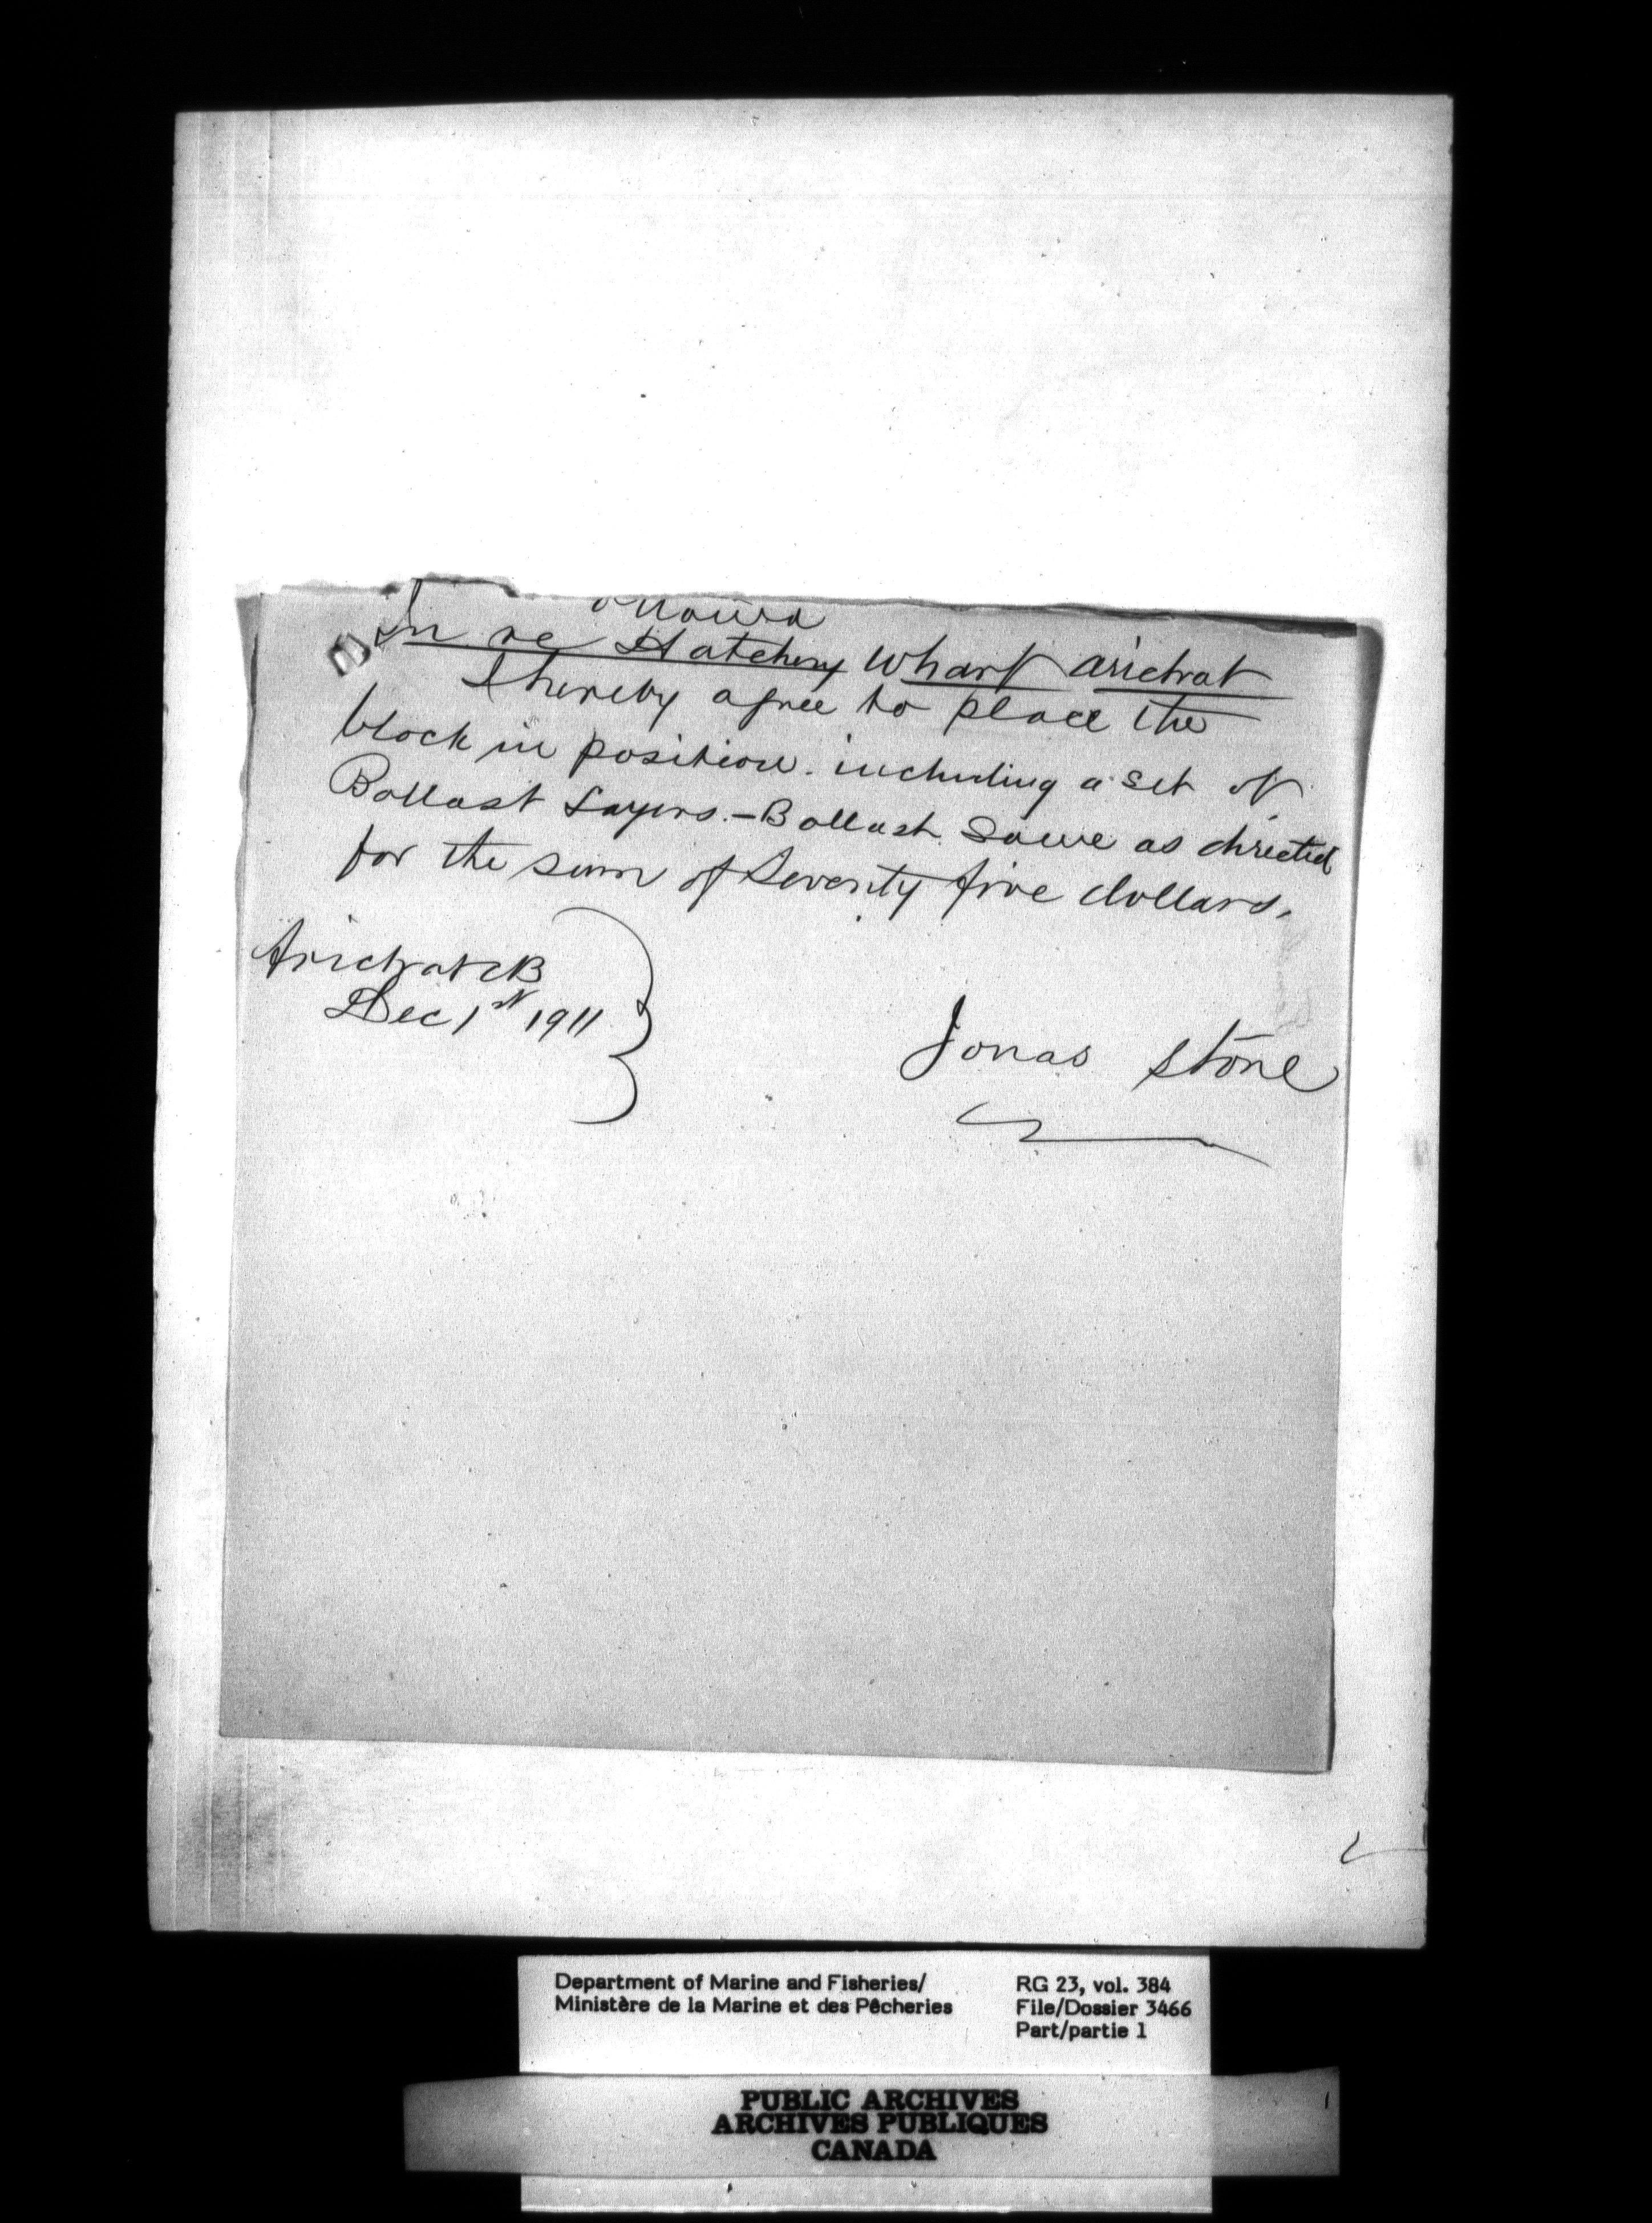 Ottawa
In re Hatchery Wharf Arichat
I hereby agree to place the
block in position. including a set of
Ballast Layers. - Ballast same as directed
for the sum of Seventy five dollars.
Arichat CB
Dec 1st 1911
Jonas Stone
Department of Marine and Fisheries/
Ministère de la Marine et des Pêcheries
RG 23, vol. 384
File/Dossier 3466
Part/partie 1
PUBLIC ARCHIVES
ARCHIVES PUBLIQUES
CANADA